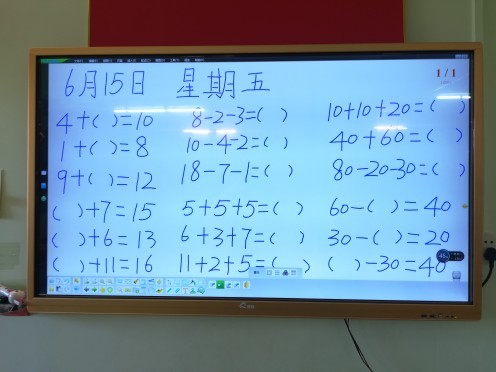 6月15日 星期五
1/1
4+( )=10 8-2-3=( ) 10+10+20=( )
1+( )=8 10-4-2=( ) 40+60=( )
9+( )=12 18-7-1=( ) 80-20-30=( )
( )+7=15 5+5+5=( ) 60-( )=40
( )+6=13 6+3+7=( ) 30-( )=20
( )+11=16 11+2+5=( ) ( )-30=40